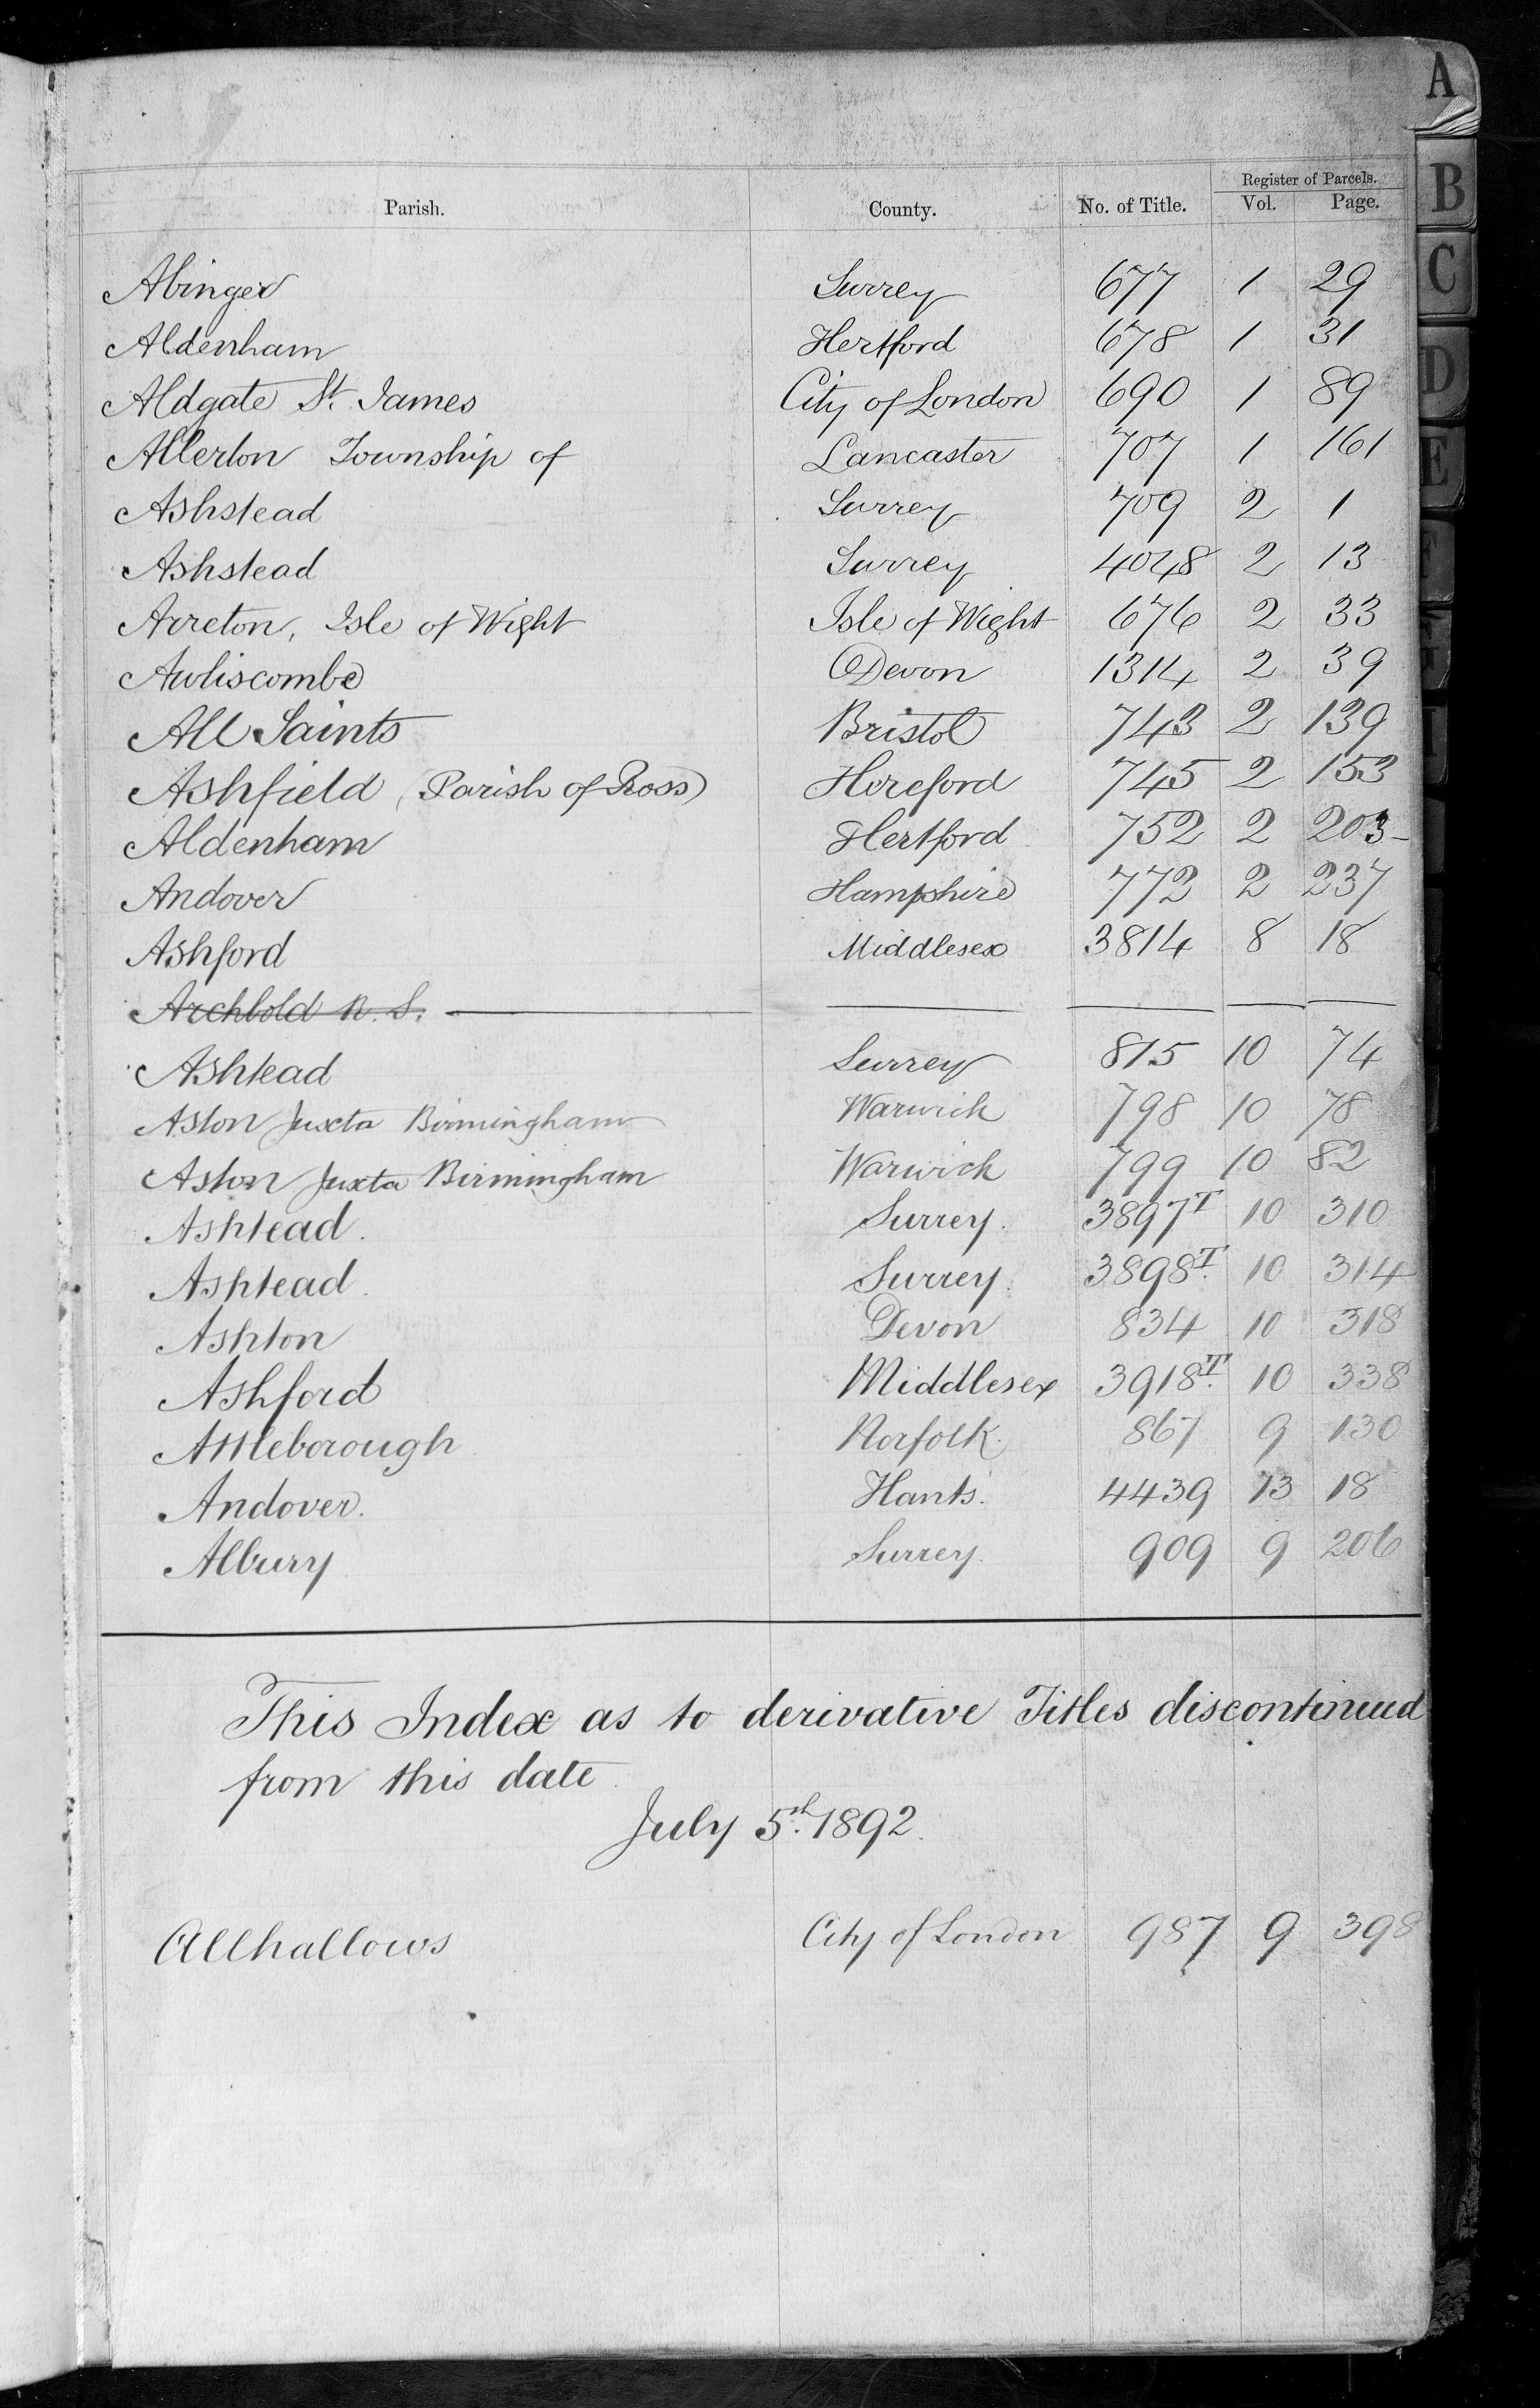 Register of Parcels.
Parish. County. No. of Title. Vol. Page.
Abinger Surrey 677 1 29
Aldenham Hertford 678 1 31
Aldgate St. James City of London 690 1 89
Allerton Township of Lancaster 707 1 161
Ashstead Surrey 709 2 1
Ashstead Surrey 4048 2 13
Arreton, Isle of Wight Isle of Wight 676 2 33
Awliscombe Devon 1314 2 39
All Saints Bristol 743 2 139
Ashfield (Parish of Ross) Hereford 745 2 153
Aldenham Hertford 752 2 203
Andover Hampshire 772 2 237
Ashford Middlesex 3814 8 18
Archbold R. S.
Ashtead Surrey 815 10 74
Aston Juxta Birmingham Warwick 798 10 78
Aston Juxta Birmingham Warwick 799 10 82
Ashtead. Surrey. 3897T 10 310
Ashtead. Surrey. 3898T. 10 314
Ashton Devon 834 10 318
Ashford Middlesex 3918T. 10 338
Attleborough Norfolk. 867 9 130
Andover. Hants. 4439 13 18
Albury Surrey. 909 9 206
This Index as to derivative Titles discontinued
from this date.
July 5th. 1892.
Allhallows City of London 987 9 398
A
B
C
D
E
F
G
I